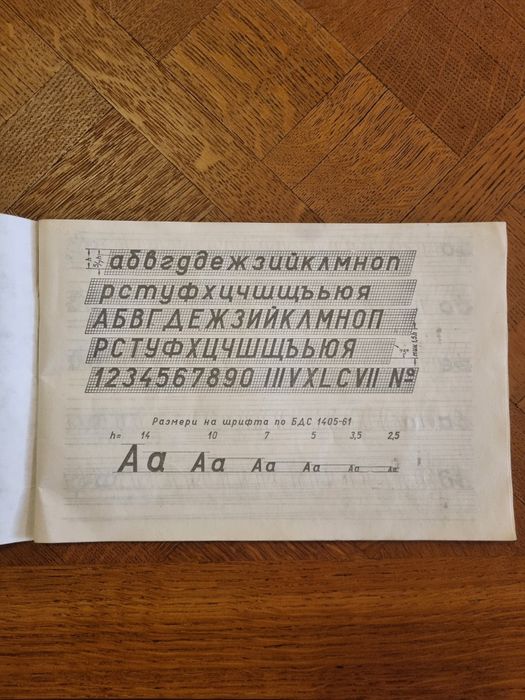 абвгддежзийклмноп
рстуфхцчшщъьюя
АБВГДЕЖЗИЙКЛМНОП
РСТУФХЦЧШЩЪЬЮЯ
1234567890 IIIVXLCVII №
Размери на шрифта по БДС 1405-61
h= 14 10 7 5 3,5 2,5
Aa Aa Aa Aa Aa Aa